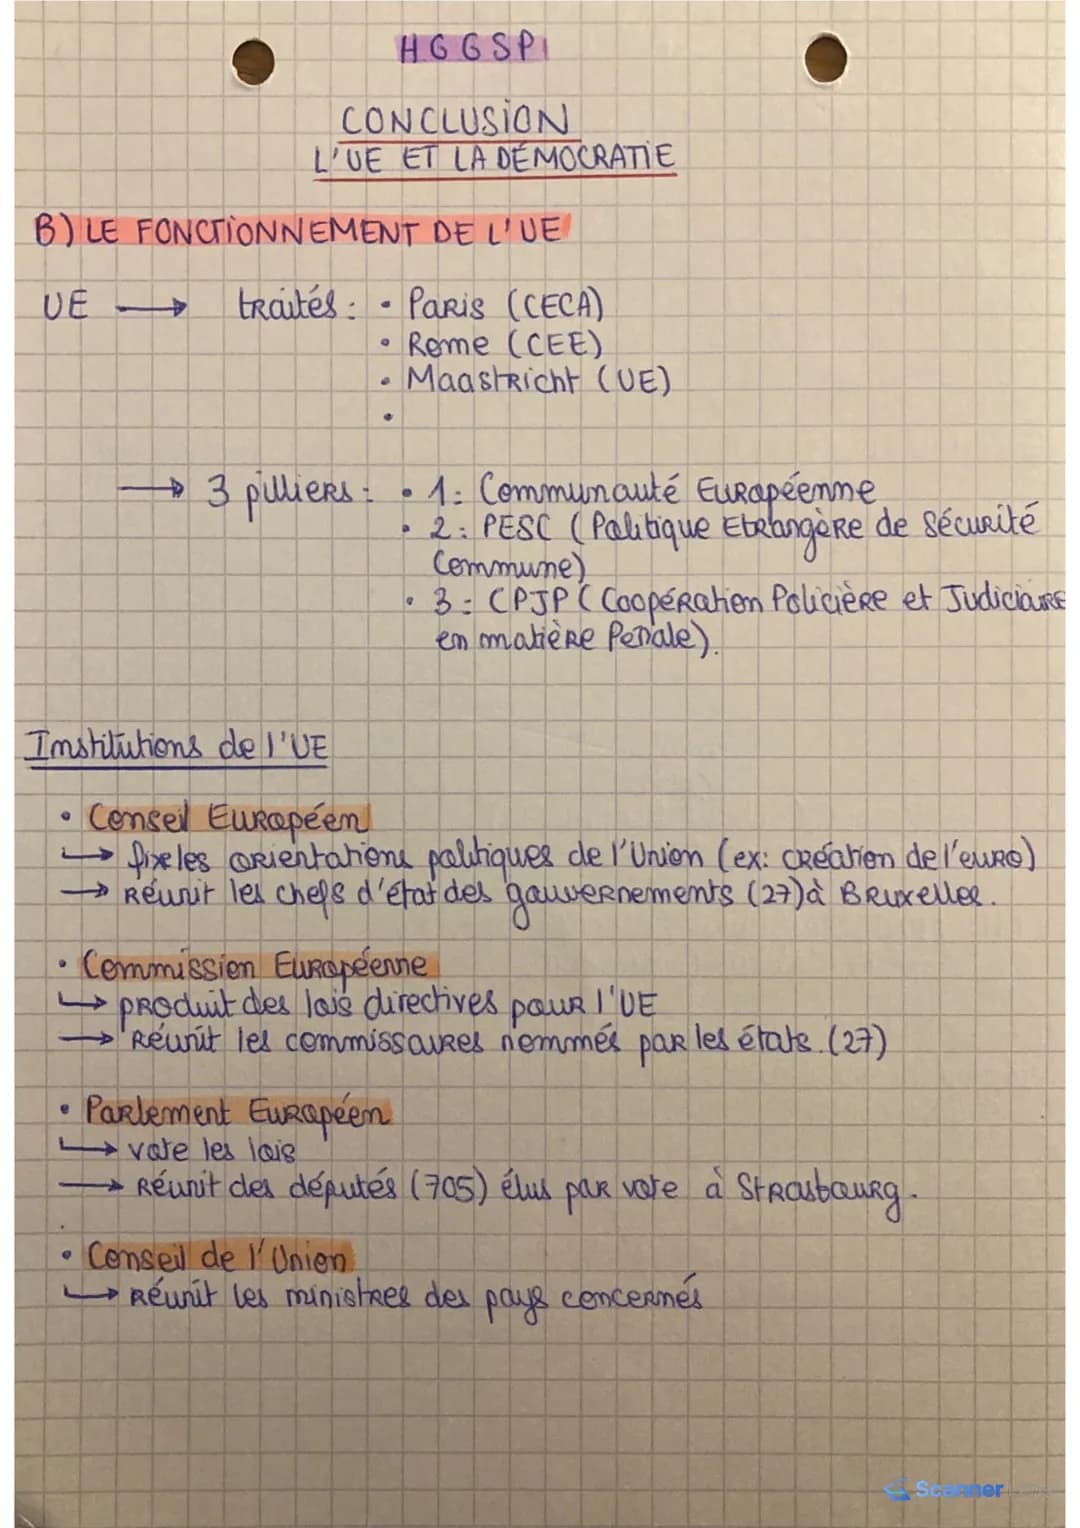 HGGSP
CONCLUSION
L'UE ET LA DÉMOCRATIE
B) LE FONCTIONNEMENT DE L'UE
UE → traités : • Paris (CECA)
• Rome (CEE)
• Maastricht (UE)
•
→ 3 pilliers : • 1 : Communauté Européenne
• 2 : PESC (Politique Etrangère de Sécurité
Commune)
• 3 : CPJP (Coopération Policière et Judiciaire
en matière Penale).
Institutions de l'UE
• Conseil Européen
↳ fixe les orientations politiques de l'Union (ex: création de l'euro)
→ Réunit les chefs d'état des gouvernements (27) à Bruxelles.
• Commission Européenne
↳ produit des lois directives pour l'UE
→ Réunit les commissaires nommés par les états. (27)
• Parlement Européen
↳ vote les lois
→ Réunit des députés (705) élus par vote à Strasbourg.
• Conseil de l'Union
↳ Réunit les ministres des pays concernés
Scanner